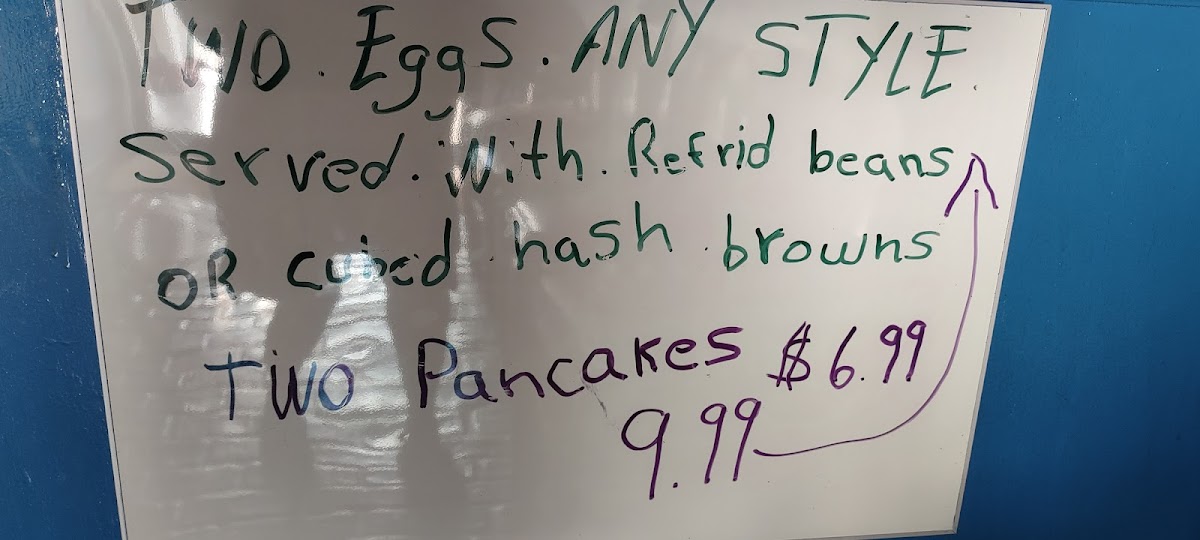 TWO. Eggs. ANY STYLE.
Served. With. Refrid beans
OR cubed hash browns
TWO Pancakes $6.99
9.99